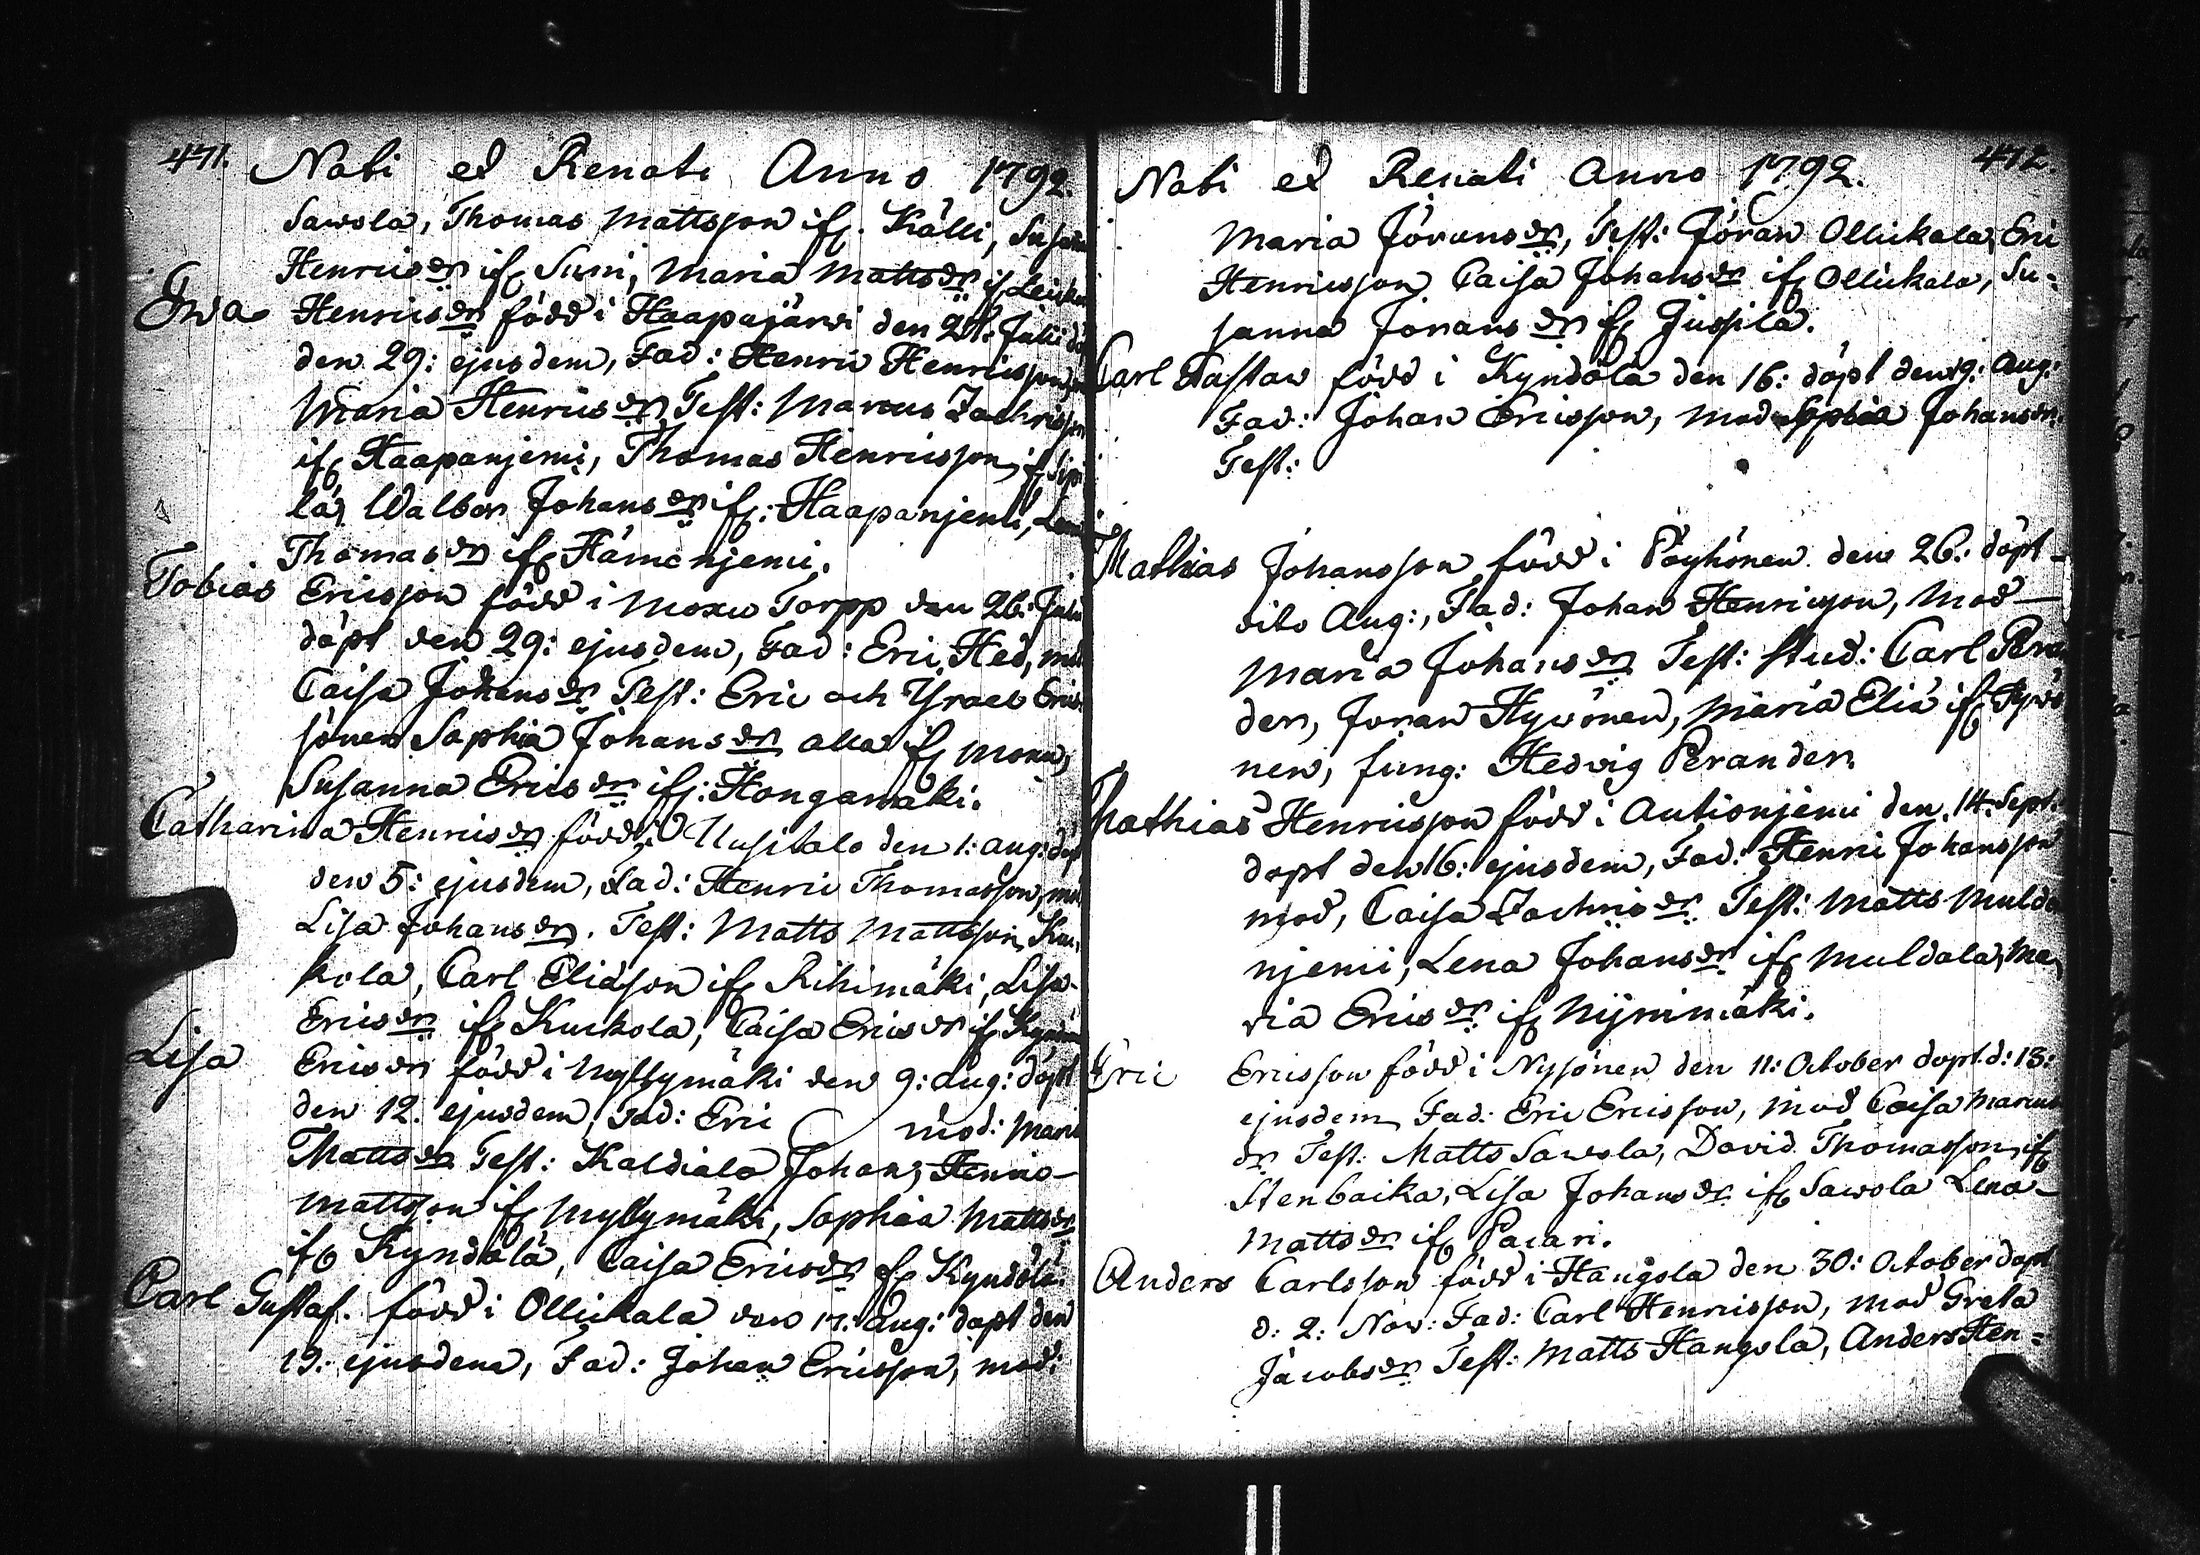 471. Nati et Renati Anno 1792.
Sawola, Thomas Mattsson if. Källi, Susanna
Henricsdr if Suni, Maria Mattsdr if
Ewa Henricsdr född i Haapajärwi den 27: Julii
den 29: ejusdem, Fad: Henric Henricsson,
Maria Henricsdr Test: Marcus Zachrisson
if Haapanjemi, Thomas Henricsson, if Sipi
lä, Walbor Johansdr if: Haapanjemi, Lena
Thomasdr if Hämenjemi.
Tobias Ericsson född i Moxu Torpp den 26: Julii
döpt den 29: ejusdem, Fad: Eric Hed, mod
Caisa Johansdr Test: Eric och Ysrael Eric
söner Sophia Johansdr alla if Moxu,
Susanna Ericsdr if: Hongamäki.
Catharina Henricsdr född i Uusitalo den 1: Aug: döpt
den 5: ejusdem, Fad: Henric Thomasson, mod
Lisa Johansdr. Test: Matts Mattsson, Kuc
kola, Carl Eliasson if Rihimäki, Lisa
Ericsdr if Kuckola, Caisa Ericsdr if
Lisa Ericsdr född i Myllymäki den 9: Aug: döpt
den 12. ejusdem, Fad: Eric mod: Maria
Mattsdr Test: Kaldiala Johan, Henric
Mattsson if Myllymäki, Sophia Mattsdr
if Kyndölä, Caisa Ericsdr if Kyndölä.
Carl Gustaf. född i Ollickala den 17. Aug: döpt den
19: ejusdem, Fad: Johan Ericsson, mod:
Nati et Renati Anno 1792. 472.
Maria Göransdr, Test: Göran Ollickala, Eric
Henricsson Caisa Johansdr if Ollickala, Su-
sanna Joransdr if Jussila.
Carl Gustaw född i Kyndölä den 16: döpt den 19: Aug:
Fad: Johan Ericsson, mod Sophia Johansdr.
Test:
Mathias Johansson född i Pöyhönen den 26: döpt
dito Aug:, Fad: Johan Henricsson, Mod
Maria Johansdr Test: Stud: Carl Peran
der, Joran Hywönen, Maria Eliä if Hywö
nen, jung: Hedvig Perander.
Mathias Henricsson född i Autionjemi den 14. Sept:
döpt den 16: ejusdem, Fad: Henric Johansson
mod, Caisa Zachrisdr Test: Matts Mulda
njemi, Lena Johansdr if Muldala, Ma
ria Ericsdr if Nijnimäki.
Eric Ericsson född i Nysönen den 11: October döpt d: 13:
ejusdem Fad: Eric Ericsson, mod Caisa Marcus
dr Test: Matts Sawola, David Thomasson if
Stenbacka, Lisa Johansdr if Sawola Lena
Mattsdr if Pacari.
Anders Carlsson född i Hangola den 30: October döpt
d: 2: Nov: Fad: Carl Henricsson, mod Greta
Jacobsdr Test: Matts Hangola, Anders Hen-